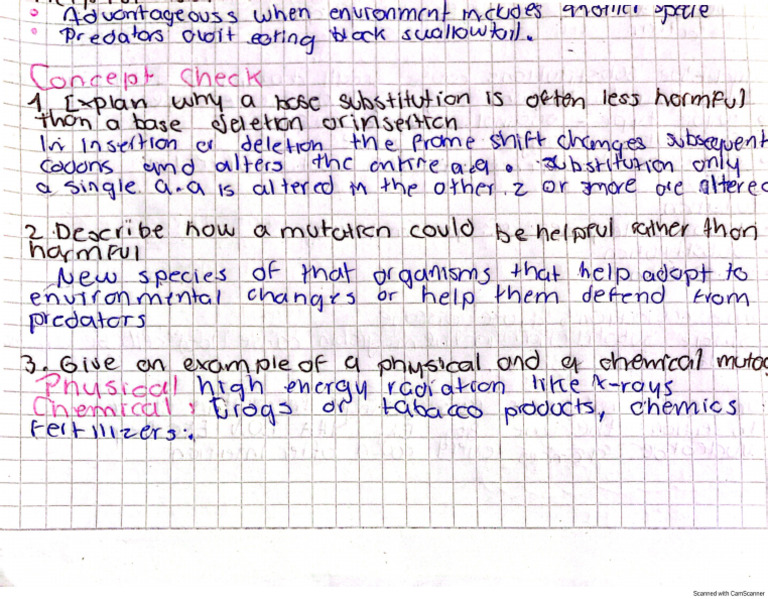 Advantageouss when environment includes another specie
Predators avoit eating black swallowtail.
Concept check
1. Explan why a base substitution is often less harmful
than a base deletion or insertion
In insertion or deletion the frame shift changes subsequent
codons and alters the entire a.a. substitution only
a single a.a is altered in the other 2 or more are altered
2. Describe how a mutation could be helpful rather than
harmful
New species of that organisms that help adapt to
environmental changes or help them defend from
predators
3. Give an example of a physical and a chemical mutag
Physical high energy radiation like x-rays
Chemical: Drogs or tabacco products, chemics
Fertilizers.
Scanned with CamScanner